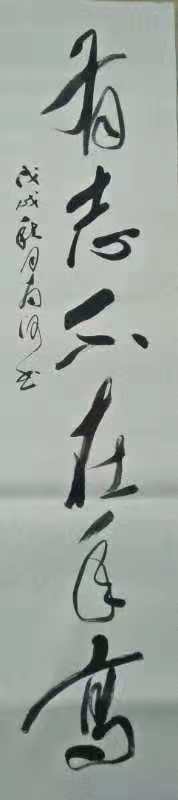 有志不在年高
戊戌秋月南河书